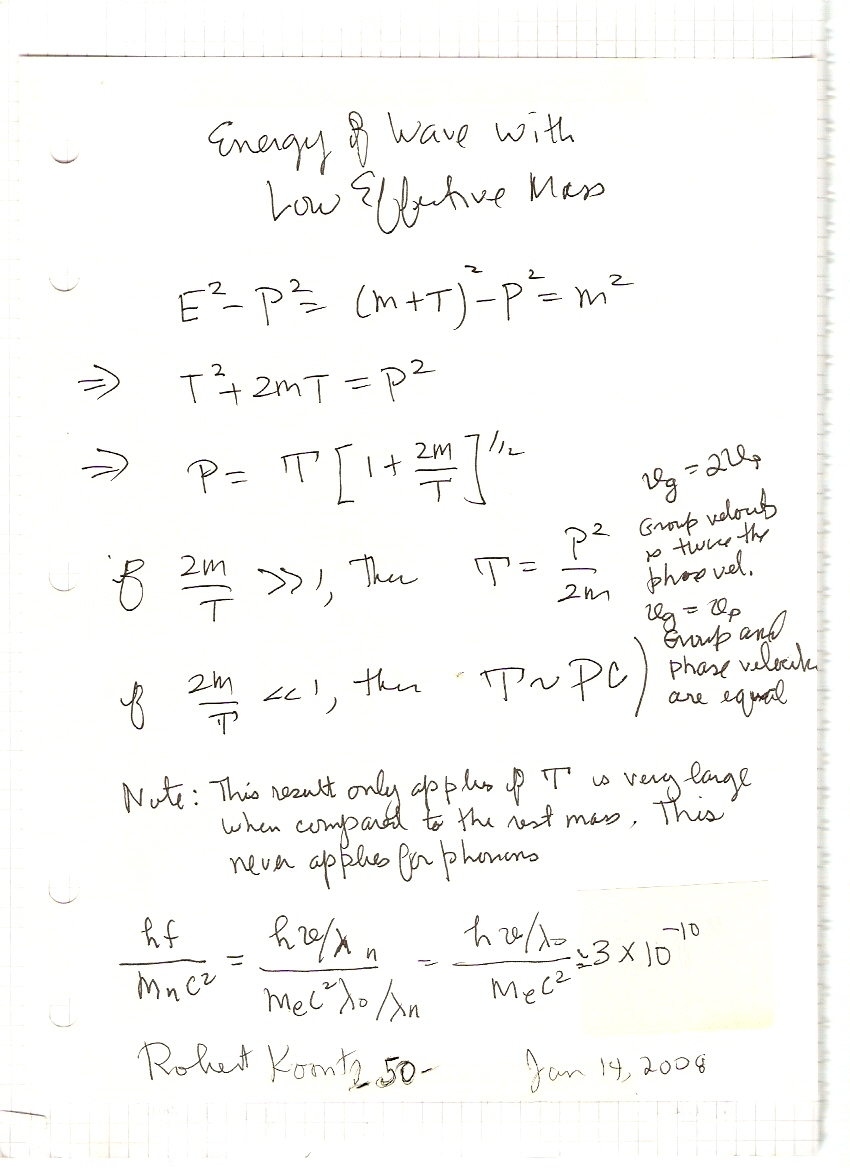 Energy of Wave with
Low Effective Mass
E² - P² = (m+T)² - P² = m²
⇒ T² + 2mT = P²
⇒ P = T [1 + 2m/T]^1/2
if 2m/T >> 1, then T = P²/2m
v_g = 2v_p
Group velocity
is twice the
phase vel.
if 2m/T << 1, then T ~ PC)
v_g = v_p
Group and
phase velocities
are equal
Note: This result only applies if T is very large
when compared to the rest mass. This
never applies for phonons
hf/m_n c² = hv/λ_n / m_e c² λ_0/λ_n = hv/λ_0 / m_e c² ≃ 3 × 10^-10
Robert Koontz 50- Jan 14, 2008